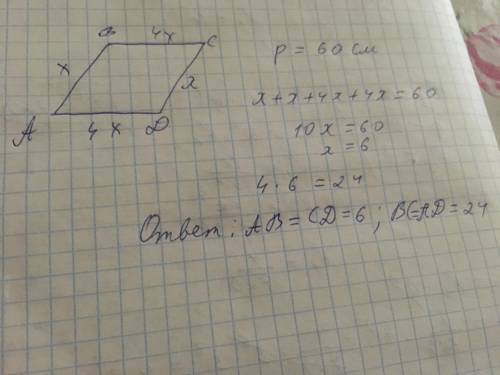 B 4x C
x x
A 4x D
P = 60 см
x+x+4x+4x=60
10x=60
x=6
4·6=24
Ответ: AB=CD=6; BC=AD=24